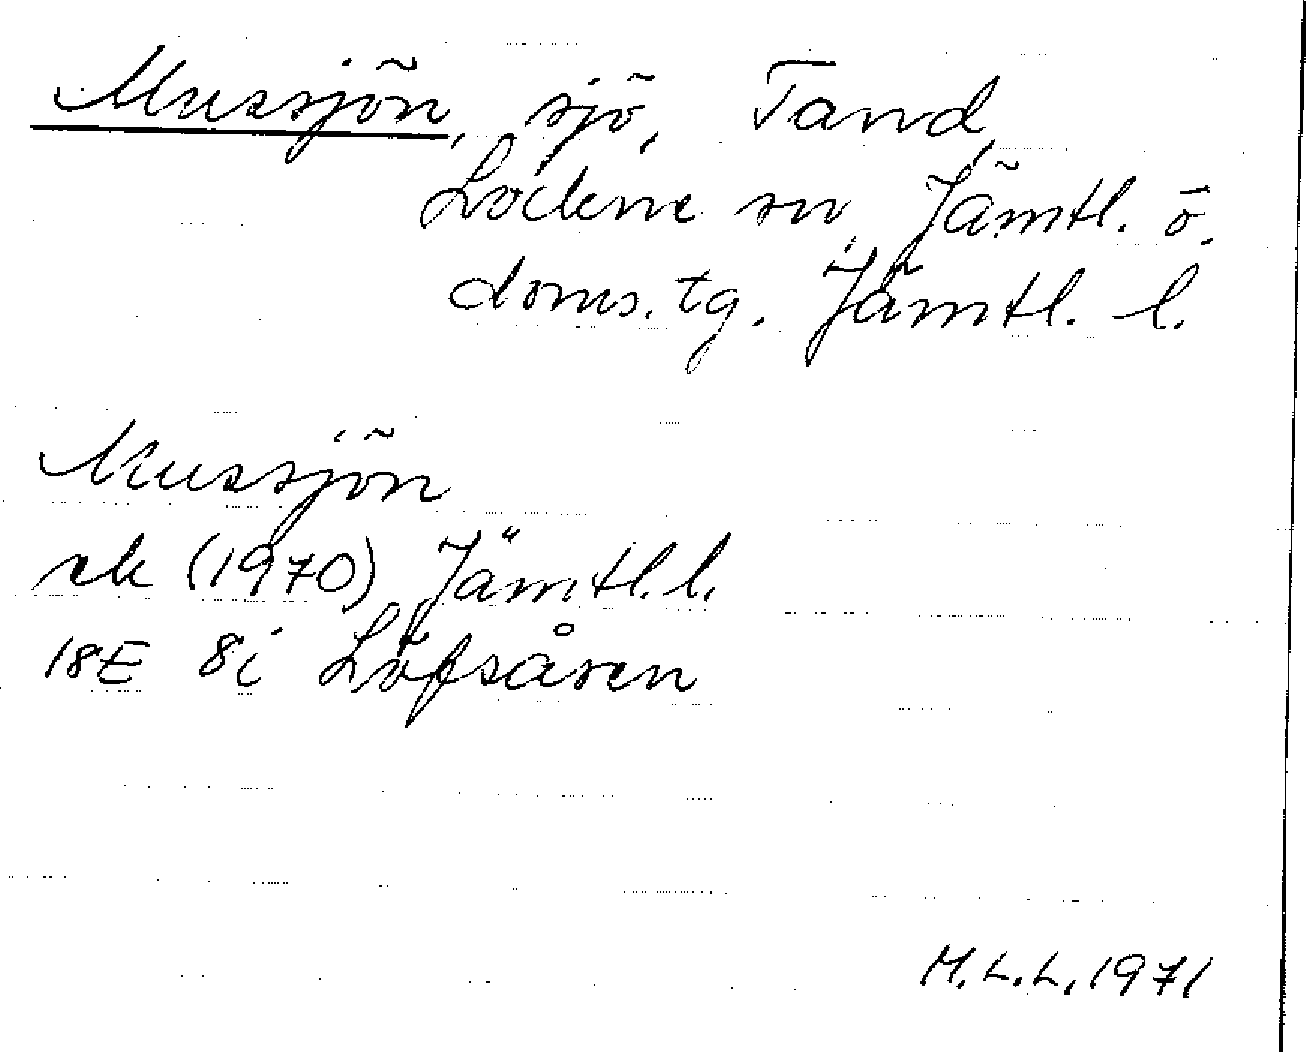 Mussjön, sjö, Tand,
Lockne sn, Jämtl. ö.
doms. tg. Jämtl. l.
Mussjön
ek (1970) Jämtl. l.
18E 8i Löfsåsen
M.L.L. 1971